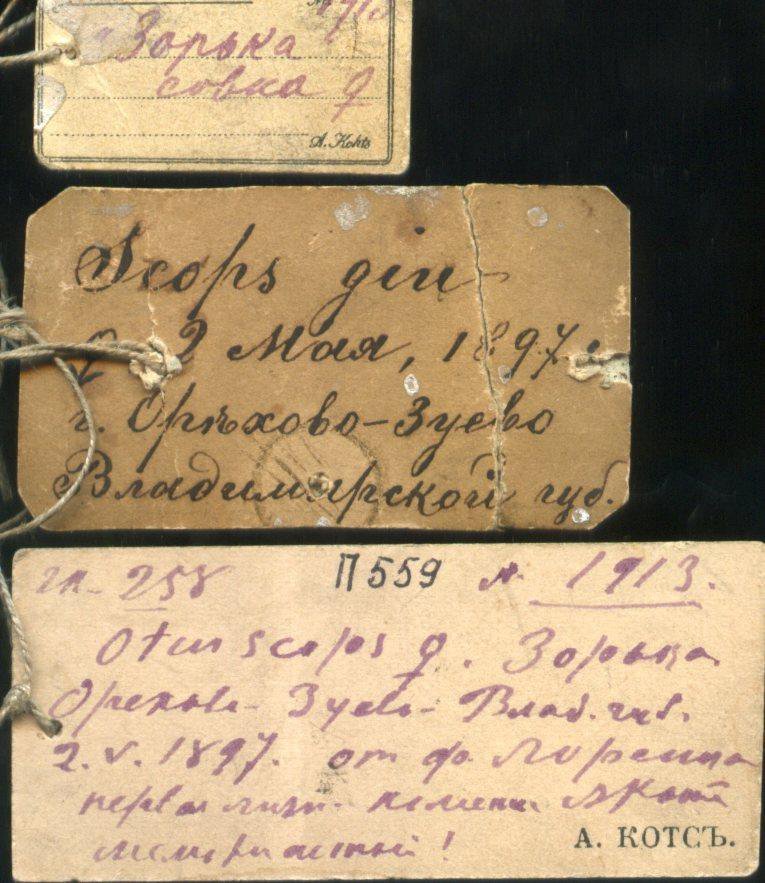 Зорька
совка ♀
A. Kohts
Scops giu
♀ 2 Мая, 1897.
г. Орѣхово-Зуево
Владимирской губ.
258 П 559 № 1913.
Otus scops ♀. Зорька
Орехово-Зуево-Влад. губ.
2.V.1897. от ф. Лоренца
А. КОТСЪ.